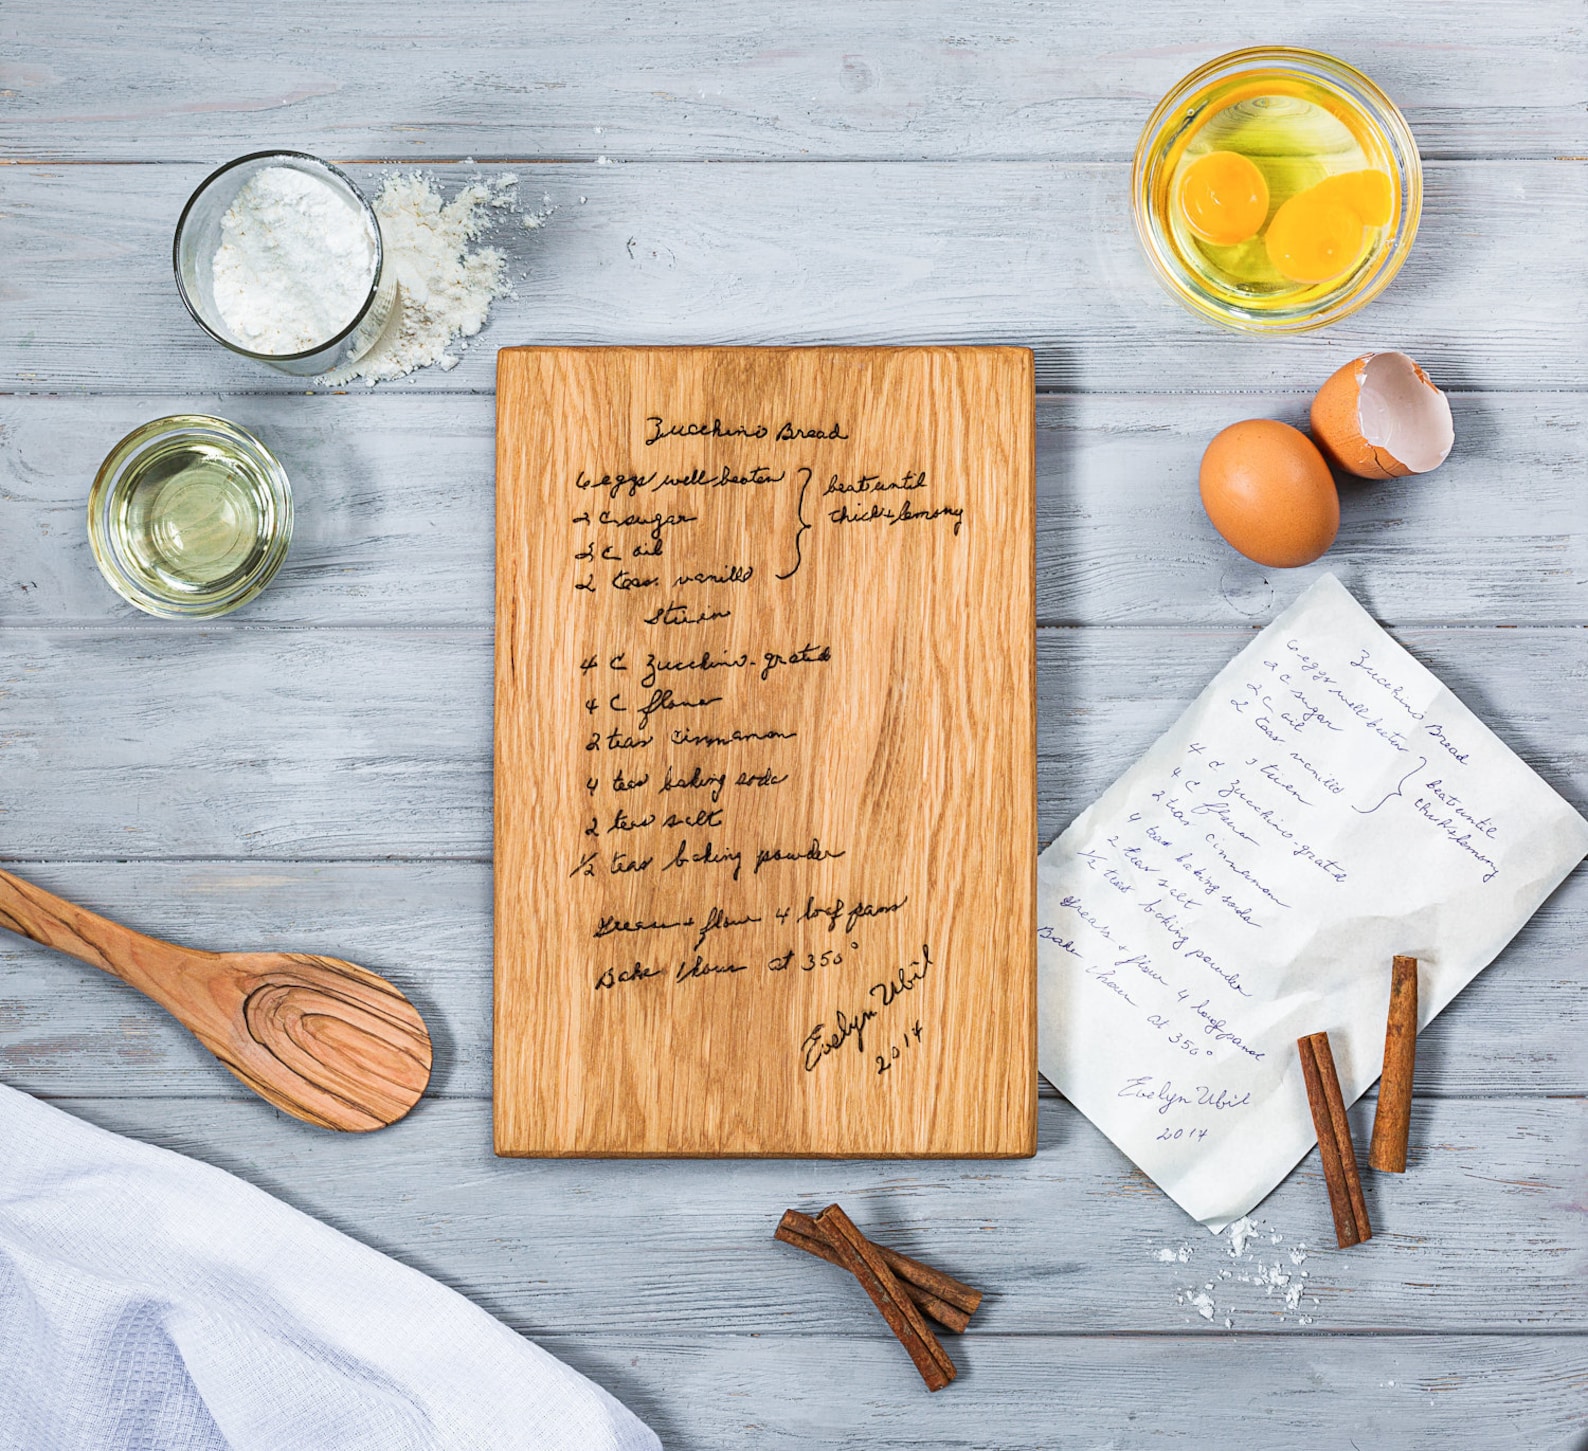 Zucchini Bread
6 eggs well beaten } beat until
2 C sugar thick & lemony
2 C oil
2 teas vanilla
Stir in
4 C Zucchini - grated
4 C flour
2 teas cinnamon
4 teas baking soda
2 teas salt
1/2 teas baking powder
Grease + flour 4 loaf pans
Bake 1 hour at 350°
Evelyn Ubil
2014
Zucchini Bread
6 eggs well beaten } beat until
2 C sugar thick & lemony
2 C oil
2 teas vanilla
Stir in
4 C Zucchini - grated
4 C flour
2 teas cinnamon
4 teas baking soda
2 teas salt
1/2 teas baking powder
Grease + flour 4 loaf pans
Bake 1 hour at 350°
Evelyn Ubil
2014